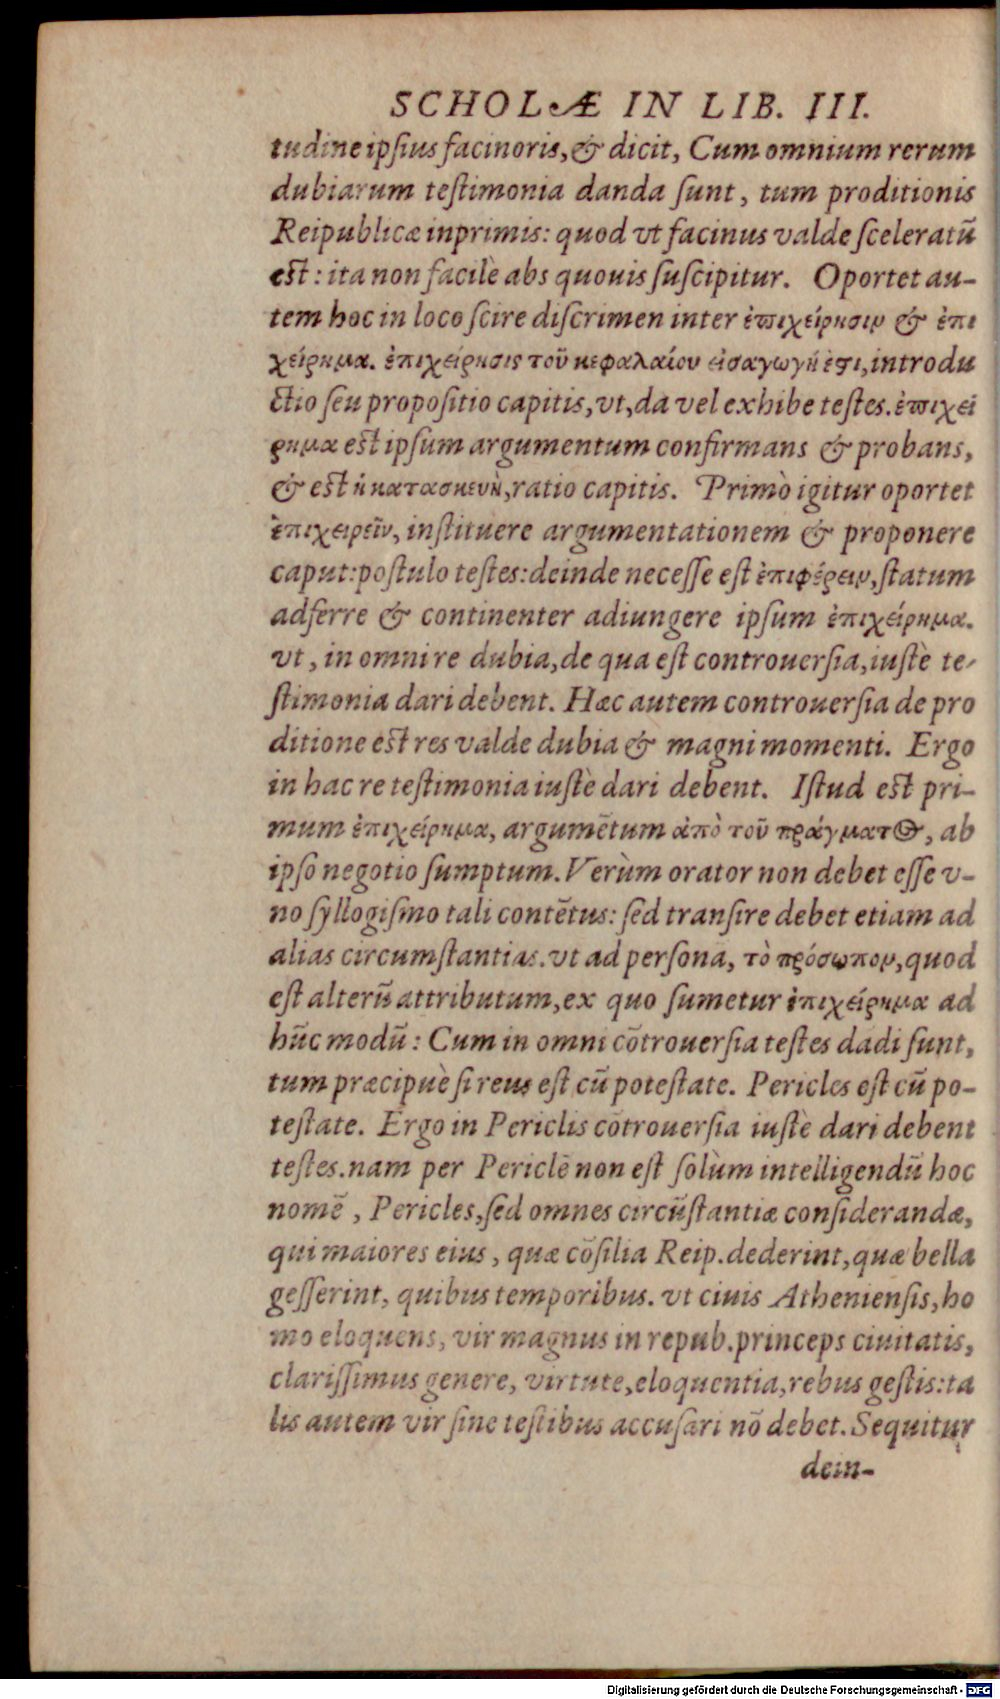 SCHOLÆ IN LIB. III.
tudine ipſius facinoris, & dicit, Cum omnium rerum
dubiarum teſtimonia danda ſunt, tum proditionis
Reipublicæ inprimis: quod vt facinus valde ſceleratũ
eſt: ita non facilè abs quouis ſuſcipitur. Oportet au-
tem hoc in loco ſcire diſcrimen inter ἐπιχείρησιν & ἐπι
χείρημα. ἐπιχείρησις τοῦ κεφαλαίου εἰσαγωγή ἐϛι, introdu
ctio ſeu propoſitio capitis, vt, da vel exhibe teſtes. ἐπιχεί
ρημα eſt ipſum argumentum confirmans & probans,
& eſt ἡ κατασκευὴ, ratio capitis. Primò igitur oportet
ἐπιχειρεῖν, inſtituere argumentationem & proponere
caput: poſtulo teſtes: deinde neceſſe eſt ἐπιφέρειν, ſtatum
adferre & continenter adiungere ipſum ἐπιχείρημα.
vt, in omni re dubia, de qua eſt controuerſia, iuſtè te-
ſtimonia dari debent. Hæc autem controuerſia de pro
ditione eſt res valde dubia & magni momenti. Ergo
in hac re teſtimonia iuſtè dari debent. Iſtud eſt pri-
mum ἐπιχείρημα, argumẽtum ἀπὸ τοῦ πράγματος, ab
ipſo negotio ſumptum. Verùm orator non debet eſſe v-
no ſyllogiſmo tali contẽtus: ſed tranſire debet etiam ad
alias circumſtantias. vt ad perſona, τὸ πρόσωπον, quod
eſt alterũ attributum, ex quo ſumetur ἐπιχείρημα ad
hũc modũ: Cum in omni cõtrouerſia teſtes dadi ſunt,
tum præcipuè ſi reus eſt cũ poteſtate. Pericles eſt cũ po-
teſtate. Ergo in Periclis cõtrouerſia iuſtè dari debent
teſtes. nam per Periclẽ non eſt ſolùm intelligendũ hoc
nomẽ, Pericles, ſed omnes circũſtantiæ conſiderandæ,
qui maiores eius, quæ cõſilia Reip. dederint, quæ bella
geſſerint, quibus temporibus. vt ciuis Athenienſis, ho
mo eloquens, vir magnus in repub. princeps ciuitatis,
clariſſimus genere, virtute, eloquentia, rebus geſtis: ta
lis autem vir ſine teſtibus accuſari nõ debet. Sequitur
dein-
Digitalisierung gefördert durch die Deutsche Forschungsgemeinschaft - DFG